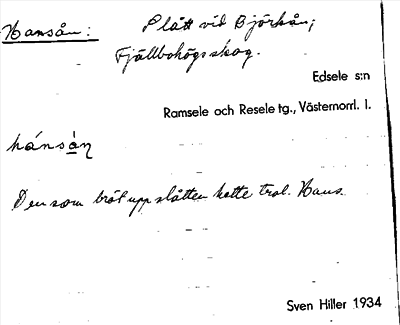 Hansån: Slått vid Björkån;
Fjällbohögsskog.
Edsele s:n
Ramsele och Resele tg., Västernorrl. l.
hánsàn
Den som bröt upp slåtten hette trol. Hans.
Sven Hiller 1934